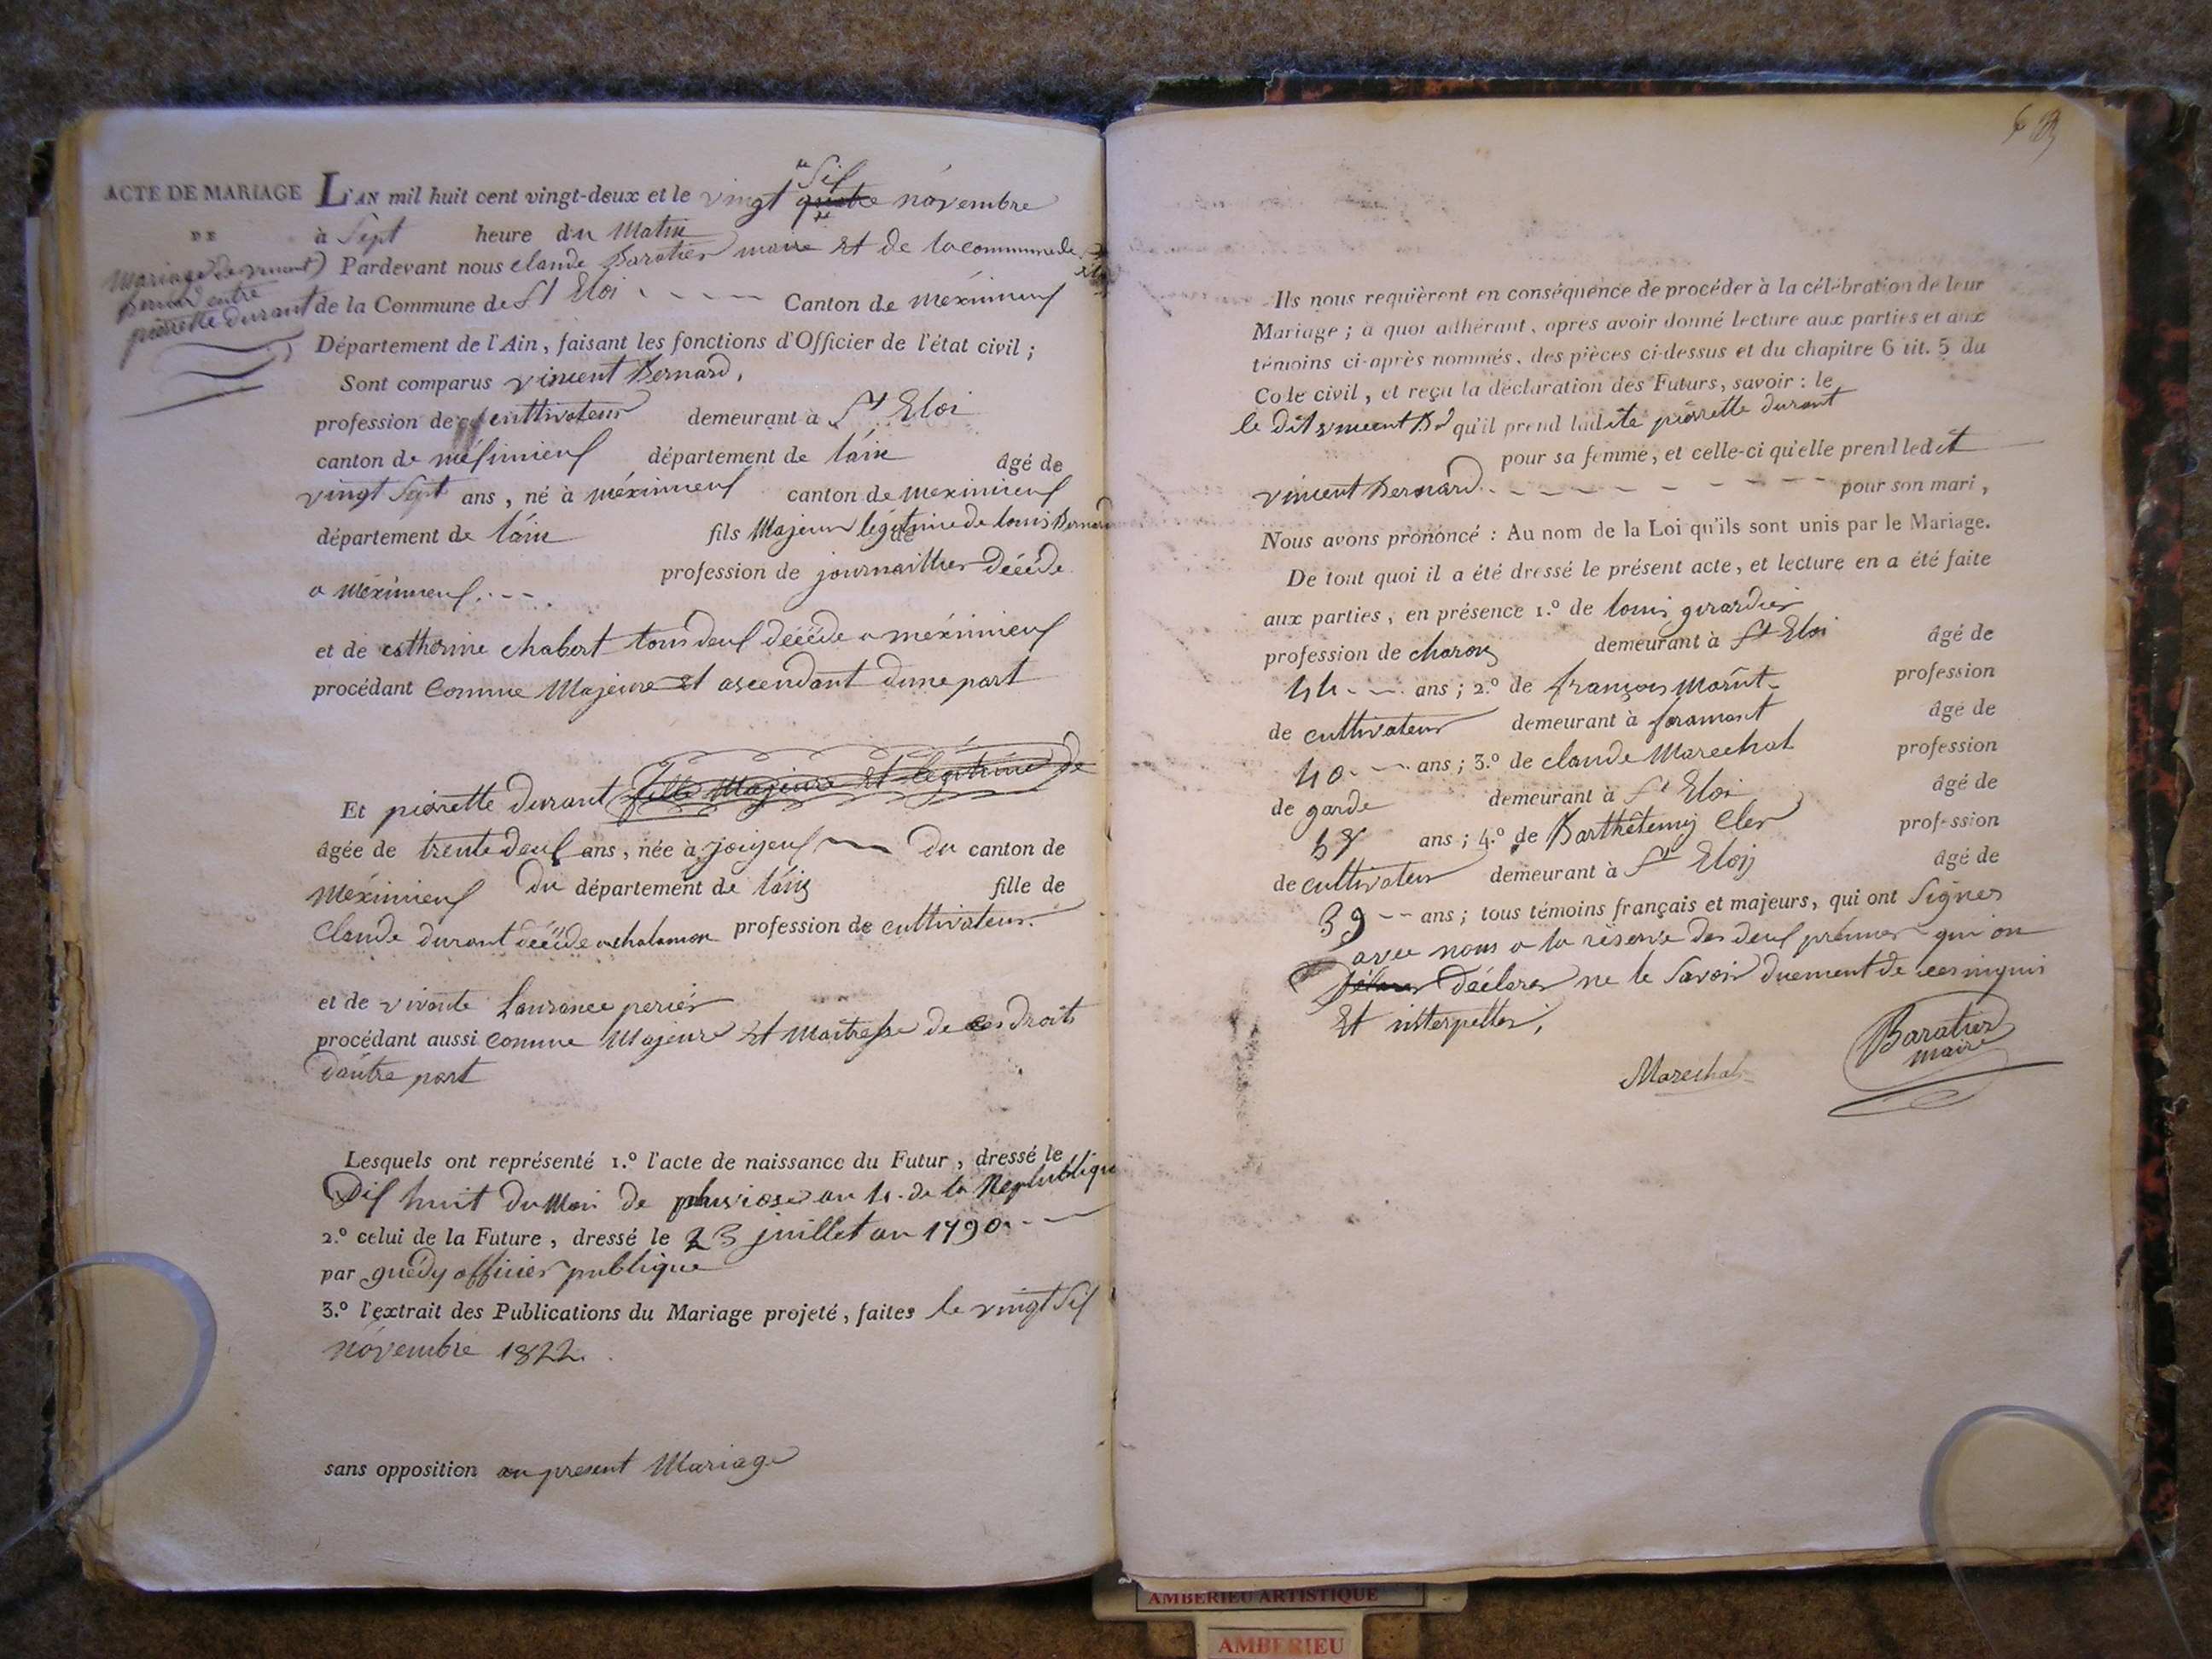 ACTE DE MARIAGE
DE
Mariage de vincent
Bernard entre
pierrette durant
L'AN mil huit cent vingt-deux et le vingt Sif quatre novembre
à Sept heure du Matin
Pardevant nous claude Baratier maire Et de la commune de
de la Commune de St Eloi Canton de meximieuf
Département de l'Ain, faisant les fonctions d'Officier de l'état civil ;
Sont comparus vincent Bernard,
profession de cultivateur demeurant à St Eloi
canton de mésimieuf département de láin âgé de
vingt Sept ans, né à méximieuf canton de meximieuf
département de láin fils Majeur légitime de de louis Bernard
profession de journaillier décéde
a Méximieuf.
et de catherine chabert tous deuf décéde a méximieuf
procédant Comme Majeure Et ascendant dune part
Et pierrette durant fille Majeure Et légitime de
âgée de trente deuf ans, née à joyeuf Du canton de
Méximieuf Du département de láin fille de
Claude durant décéde a chalamon profession de cultivateur.
et de vivante Laurance periér
procédant aussi comme Majeure Et Maitresse de ces droits
dáutre part
Lesquels ont représenté 1.º l'acte de naissance du Futur, dressé le
Dif huit du Moi de pluviose an 4. de la Republique
2.º celui de la Future, dressé le 23 juillet an 1790
par guedy officier publique
3.º l'extrait des Publications du Mariage projeté, faites le vingt Sif
novembre 1822.
sans opposition au present Mariage
63
Ils nous requièrent en conséquence de procéder à la célébration de leur
Mariage ; à quoi adhérant, après avoir donné lecture aux parties et aux
témoins ci-après nommés, des pièces ci-dessus et du chapitre 6 tit. 5 du
Code civil, et reçu la déclaration des Futurs, savoir : le
le dit vincent Bd qu'il prend ladite pierrette durant
pour sa femme, et celle-ci qu'elle prend ledit
vincent Bernard pour son mari,
Nous avons prononcé : Au nom de la Loi qu'ils sont unis par le Mariage.
De tout quoi il a été dressé le présent acte, et lecture en a été faite
aux parties, en présence 1.º de louis girardier
profession de charon demeurant à St Eloi âgé de
44 ans ; 2.º de françois profession
de cultivateur demeurant à faramant âgé de
40 ans ; 3.º de claude Marechal profession
de garde demeurant à St Eloi âgé de
ans ; 4.º de Barthélemy Cler profession
de cultivateur demeurant à St Eloy âgé de
39 ans ; tous témoins français et majeurs, qui ont Signes
avec nous a la réserve des deuf prémier qui on
Déclarer ne le Savoir duement de ces
Et interpeller,
Marechal
Baratier
maire
AMBERIEU ARTISTIQUE
AMBERIEU